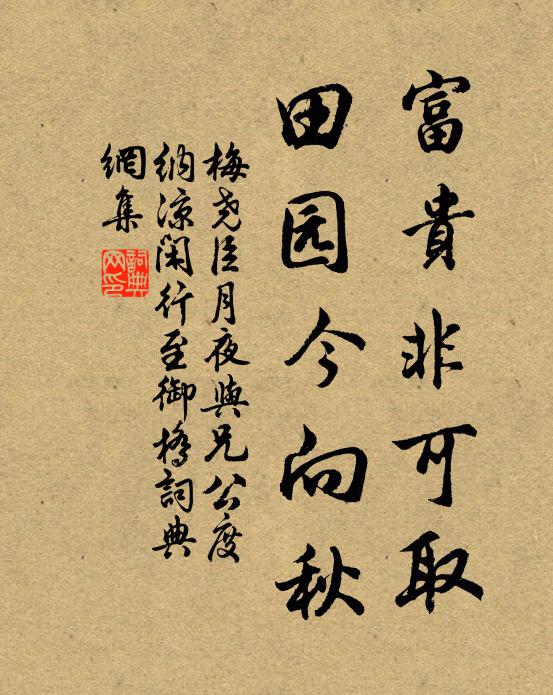 富貴非可取
田园今向秋
梅尧臣月夜與兄公度
納涼閑行至御橋詞典
網集
詞典
网印